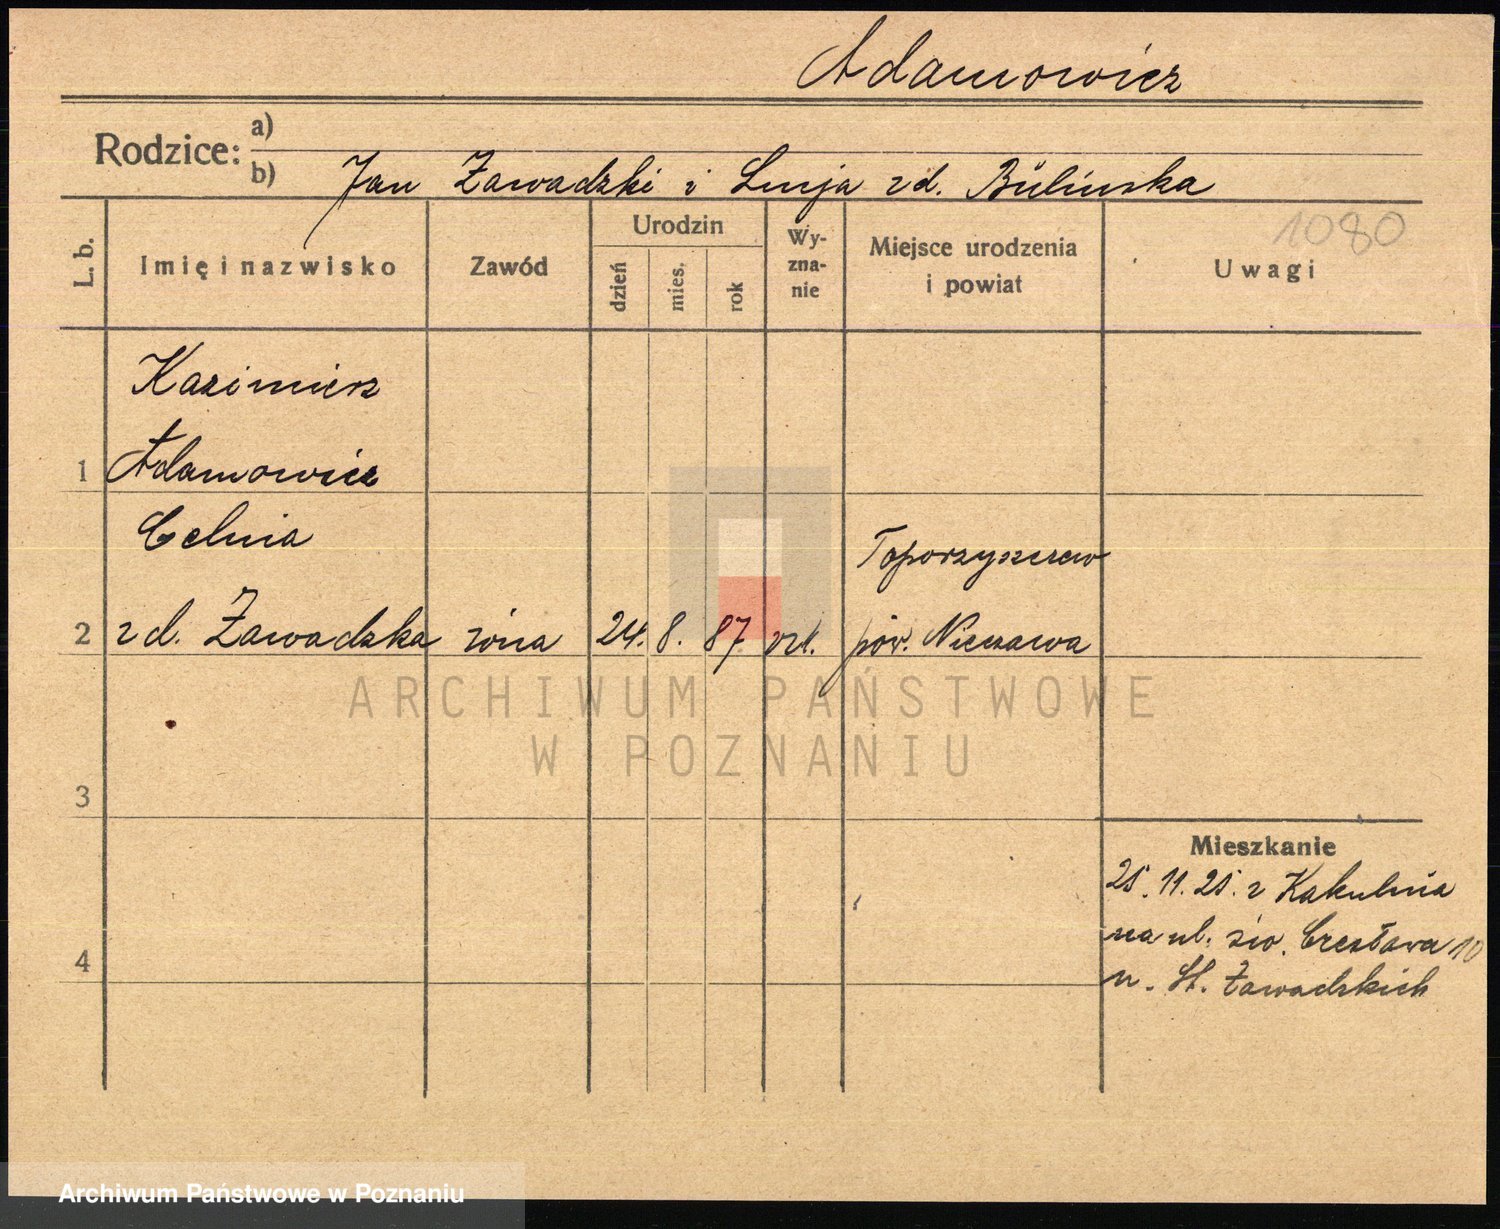 Adamowicz
Rodzice: a)
b) Jan Zawadzki i Lucja zd. Bilińska
1080
L. b. Imię i nazwisko Zawód Urodzin dzień mies. rok Wyznanie Miejsce urodzenia i powiat Uwagi
Kazimierz
1 Adamowicz
Celina Toporzyszczew
2 zd. Zawadzka żona 24. 8. 87 rzk. pow. Nieszawa
ARCHIWUM PAŃSTWOWE
W POZNANIU
3
Mieszkanie
25. 11. 25. z Kakulina
na ul. św. Czesława 10
4
u. St. Zawadzkich
Archiwum Państwowe w Poznaniu